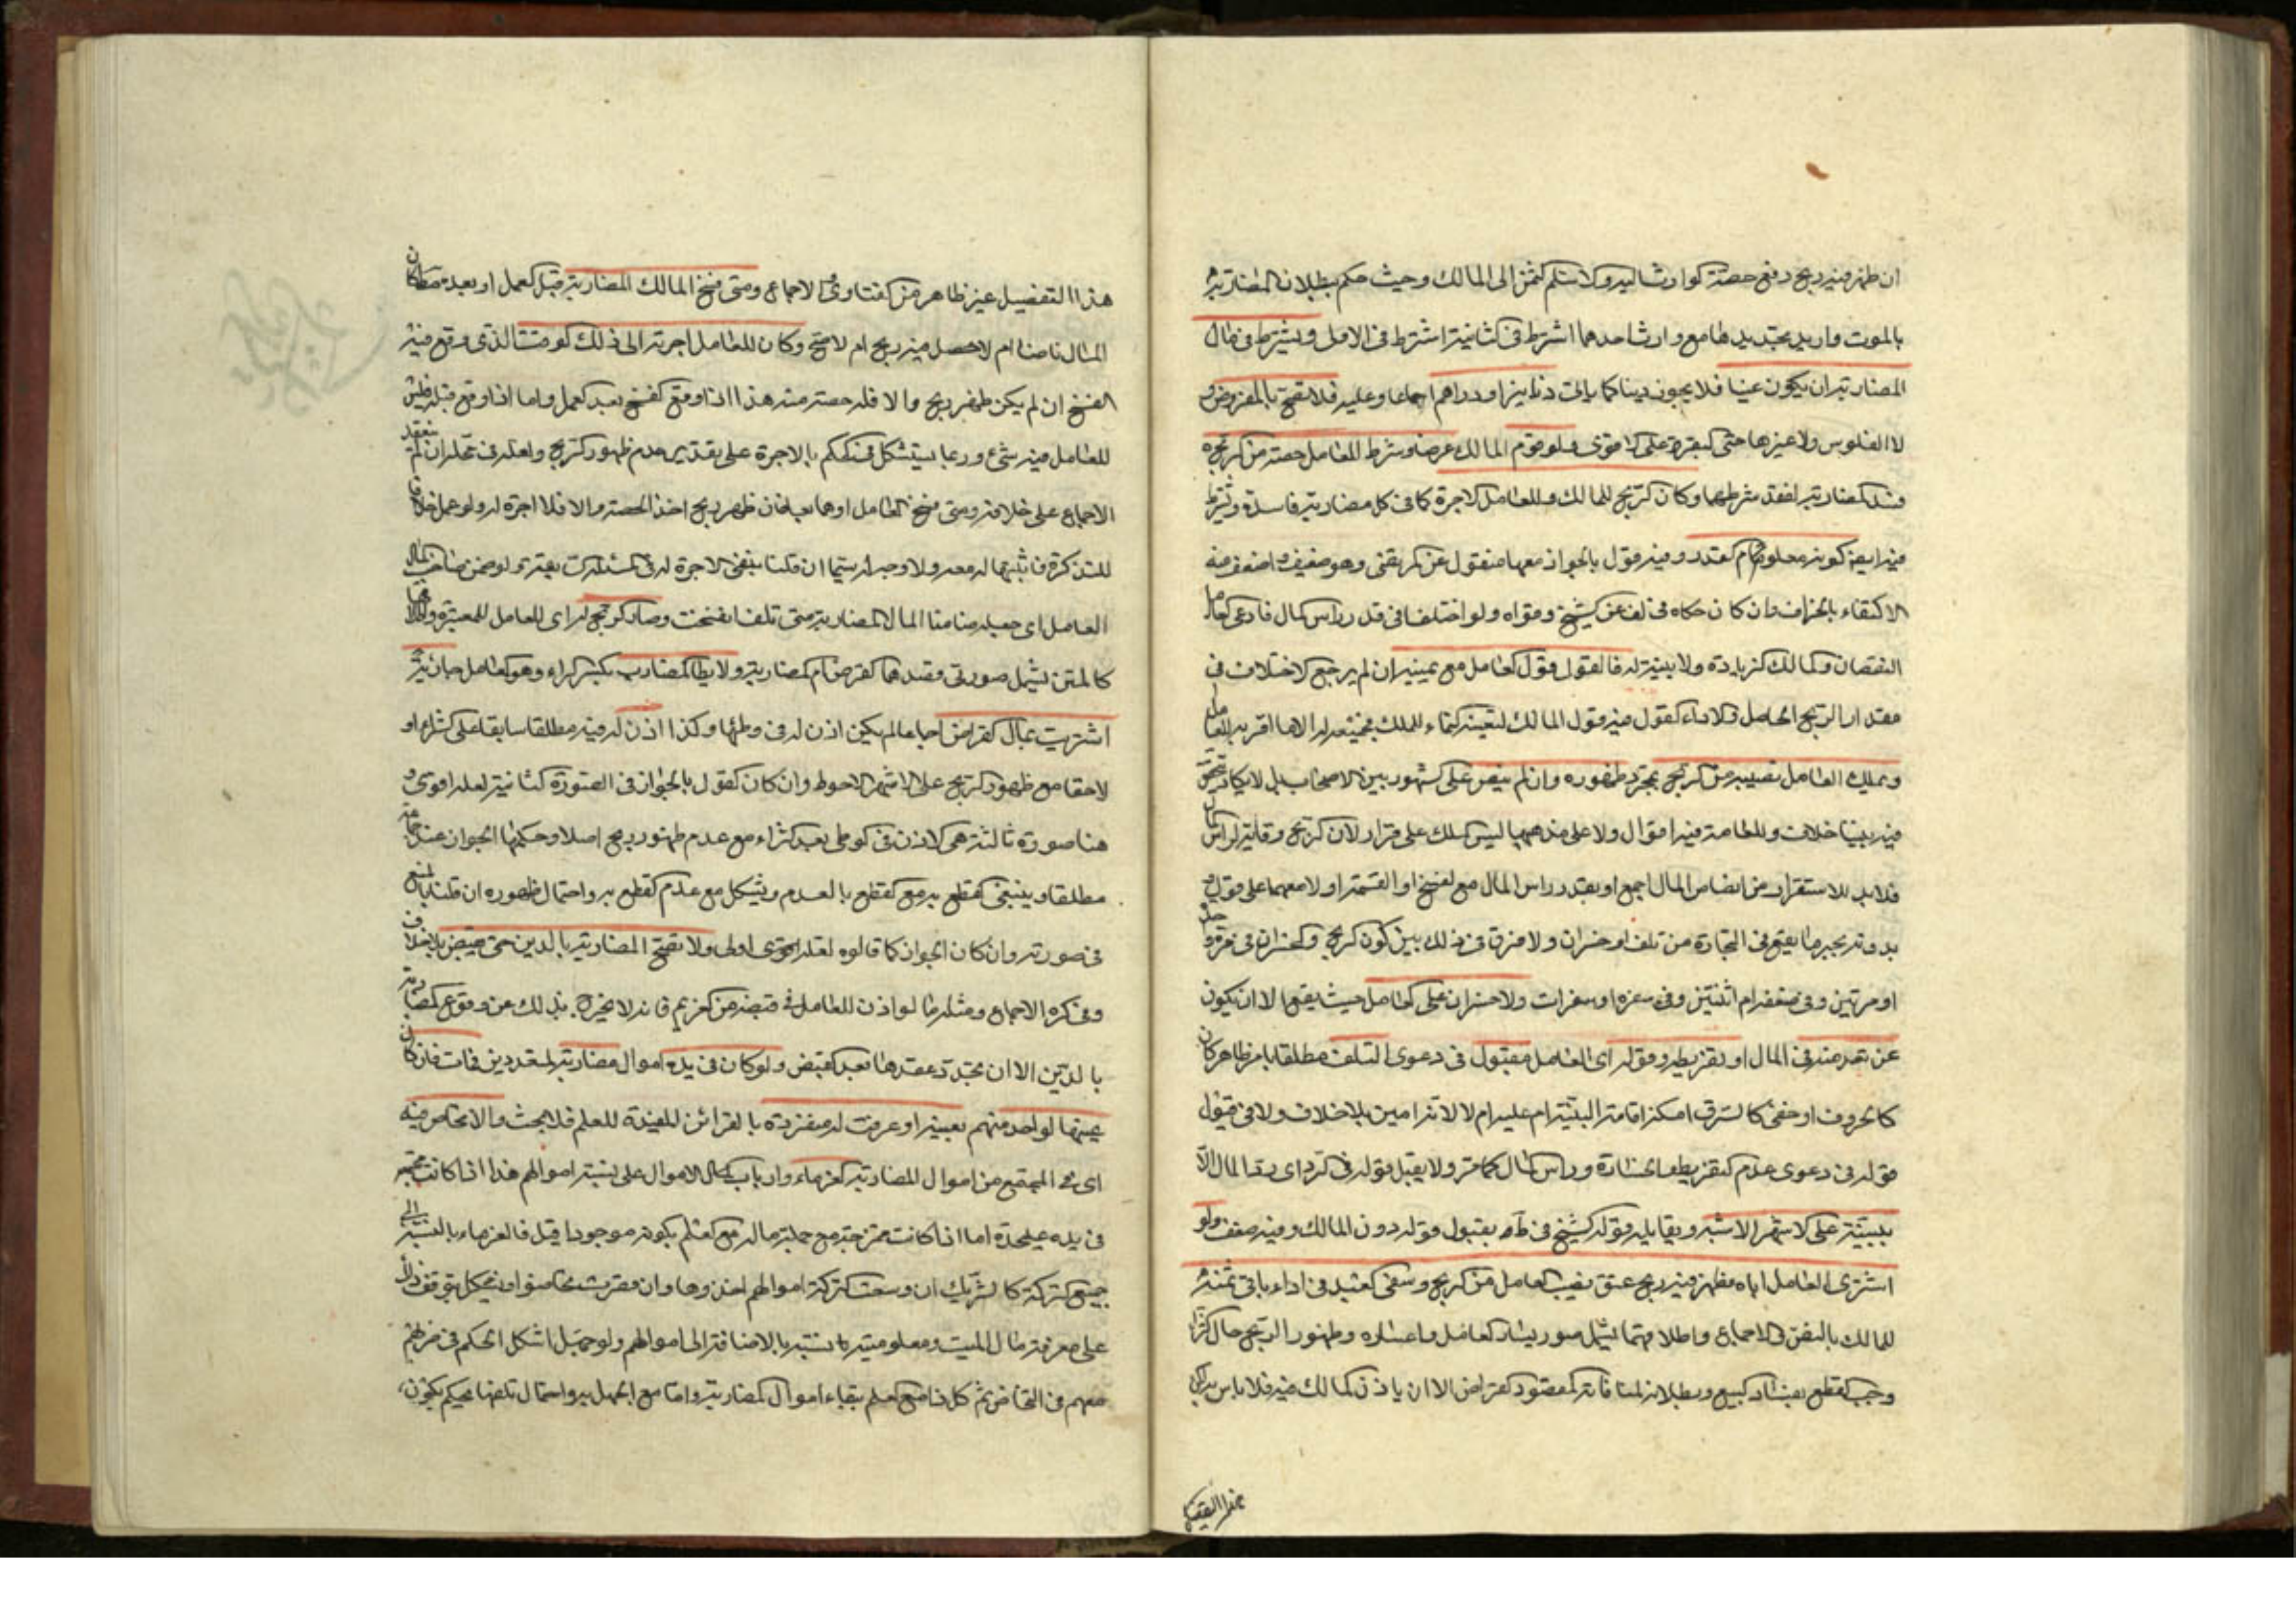 ان ظهر فيه ربح دفع حصة الوارث اليه والا سلم الثمن الى المالك وحيث حكم ببطلان المضاربة
بالموت واريد تجديدها مع وارث احدهما اشترط في الثانية ما اشترط في الاول ويشترط في مال
المضاربة ان يكون عينا فلا يجوز دينا كما ياتى دنانير او دراهم اجماعا وعليه فلا تصح بالعروض و
لا الفلوس ولا غيرها حتى النقرة على الاقوى ولو قوم المالك عرضا وشرط للعامل حصة من ربحه
فسد المضاربة لفقد شرطها وكان الربح للمالك وللعامل الاجرة كما في كل مضاربة فاسدة ويشترط
فيه ايضا كونه معلوم القدر وفيه قول بالجواز معها منقول عن المرتضى وهو ضعيف واضعف منه
الاكتفاء بالجزاف وان كان حكاه في لف عن الشيخ وقواه ولو اختلفا في قدر راس المال فادعى العامل
النقصان والمالك الزيادة ولا بينة له فالقول قول العامل مع يمينه ان لم يرجع الاختلاف في
مقدار الربح الحاصل والا فالقول فيه قول المالك
ويملك العامل نصيبه من الربح بمجرد ظهوره وان لم ينض على المشهور بين الاصحاب بل لا يكاد يتحقق
فيه بيننا خلاف وللعامة فيه اقوال ولا على مذهبها ليس الملك على قرار لان الربح وقاية لراس المال
فلابد للاستقرار من انضاض المال اجمع او بقدر راس المال مع الفسخ او القسمة او لا معهما على قول و
بدونه يجبر ما يقع في التجارة من تلف او خسران ولا فرق في ذلك بين كون الربح والخسران في مرة واحدة
او مرتين وفي صفقة ام اثنتين وفي سفرة او سفرات ولا خسران على العامل حيث يقع الا ان يكون
عن تعد منه في المال او تفريط وقوله اى العامل مقبول في دعوى التلف مطلقا بامر ظاهر كان
كالحروف او خفى كالسرق امكن اقامة البينة ام عليه ام لا لانه امين بلا خلاف ولا في قبول
قوله في دعوى عدم التفريط والخسارة وراس المال كما مر ولا يقبل قوله في الرد اى رد المال الا
ببينة على الاشهر الاشبه ويقابله قول الشيخ في ط بقبول قوله دون المالك وفيه ضعف ولو
اشترى العامل اباه فظهر فيه ربح عتق نصيب العامل من الربح وسعى العبد في اداء باقى ثمنه
للمالك بالنص والاجماع واطلاقهما يشمل صور يسار العامل واعساره وظهور الربح حال الشراء
وجب القطع بفساد البيع وبطلانه لمنافاته لمقصود القراض الا ان ياذن المالك فيه فلا باس به
هذا التفصيل غير ظاهر من الفتاوى والاجماع ومتى فسخ المالك المضاربة قبل العمل او بعده مطلقا كان
المال ناضا ام لا حصل فيه ربح ام لا صح وكان للعامل اجرته الى ذلك الوقت الذى وقع فيه
الفسخ ان لم يكن ظهر ربح والا فله حصته منه هذا اذا وقع الفسخ بعد العمل واما اذا وقع قبله فليس
للعامل فيه شئ وربما يستشكل في الحكم بالاجرة على تقدير عدم ظهور الربح ولعله في محله ان لم ينعقد
الاجماع على خلافه ومتى فسخ العامل او هما معا فان ظهر ربح اخذ الحصة والا فلا اجرة له ولو عمل خلافا
للتذكرة فاثبتها له معه ولا وجه له سيما ان قلنا بنفى الاجرة له في المسئلة السابقة ولو ضمن صاحب المال
العامل اى جعله ضامنا المال المضاربة متى تلف انفسخت وصار الربح له اى للعامل للمعتبرة واطلاقها
كالمتن يشمل صورتى قصدهما القرض ام المضاربة ولا يطا المضارب بكسر الراء وهو العامل جارية
اشتريت بمال القراض اجماعا لم يكن اذن له في وطئها وكذا اذن له فيه مطلقا سابقا على الشراء او
لاحقا مع ظهور الربح على الاشهر الاحوط وان كان القول بالجواز في الصورة الثانية لعله اقوى و
هنا صورة ثالثة هى الاذن في الوطى بعد الشراء مع عدم ظهور ربح اصلا وحكمها الجواز عند جماعة
مطلقا وينبغى القطع به مع القطع بالعدم ويشكل مع عدم القطع به واحتمال ظهوره ان قلنا بالمنع
في صورته وان كان الجواز كما قالوه لعله اقوى اولى ولا تصح المضاربة بالدين حتى يقبض بلا خلاف
وفي كره الاجماع ومثله ما لو اذن للعامل في قبضه من الغريم فانه لا يخرج بذلك عن وقوع المضاربة
بالدين الا ان يجدد عقدها بعد القبض ولو كان في يده اموال مضاربة لمتعددين فمات فان كان
عينها لواحد منهم بعينه او عرفت له منفردة بالقرائن المفيدة للعلم فلا بحث والا تحاص فيه
اى في المجتمع من اموال المضاربة الغرماء وارباب الاموال على نسبة اموالهم هذا اذا كانت مجتمعة
في يده عليحدة اما اذا كانت ممتزجة مع جملة ماله مع العلم بكونه موجودا قيل فالغرماء بالنسبة الى
جميع التركة كالشريك ان وسعت التركة اموالهم اخذوها وان قصرت تحاصوا ويشكل بتوقف ذلك
على معرفة مال الميت ومعلوميته بالنسبة بالاضافة الى اموالهم ولو جهل اشكل الحكم في ضربهم
معهم في التحاص ثم كل ذا مع العلم ببقاء اموال المضاربة واما مع الجهل به واحتمال تلفها فحكم بكون